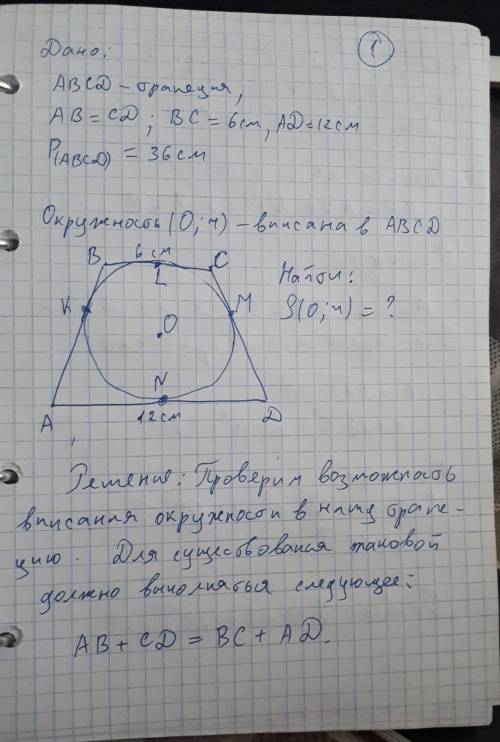 Дано:
1
ABCD – трапеция,
AB = CD; BC = 6см, AD = 12см
P(ABCD) = 36 см
Окружность (O; r) – вписана в ABCD
B 6 см C
L
Найти:
K M
S(O; r) = ?
O
N
A 12см D
Решение: Проверим возможность
вписания окружности в нашу трапе-
цию. Для существования таковой
должно выполняться следующее:
AB + CD = BC + AD.